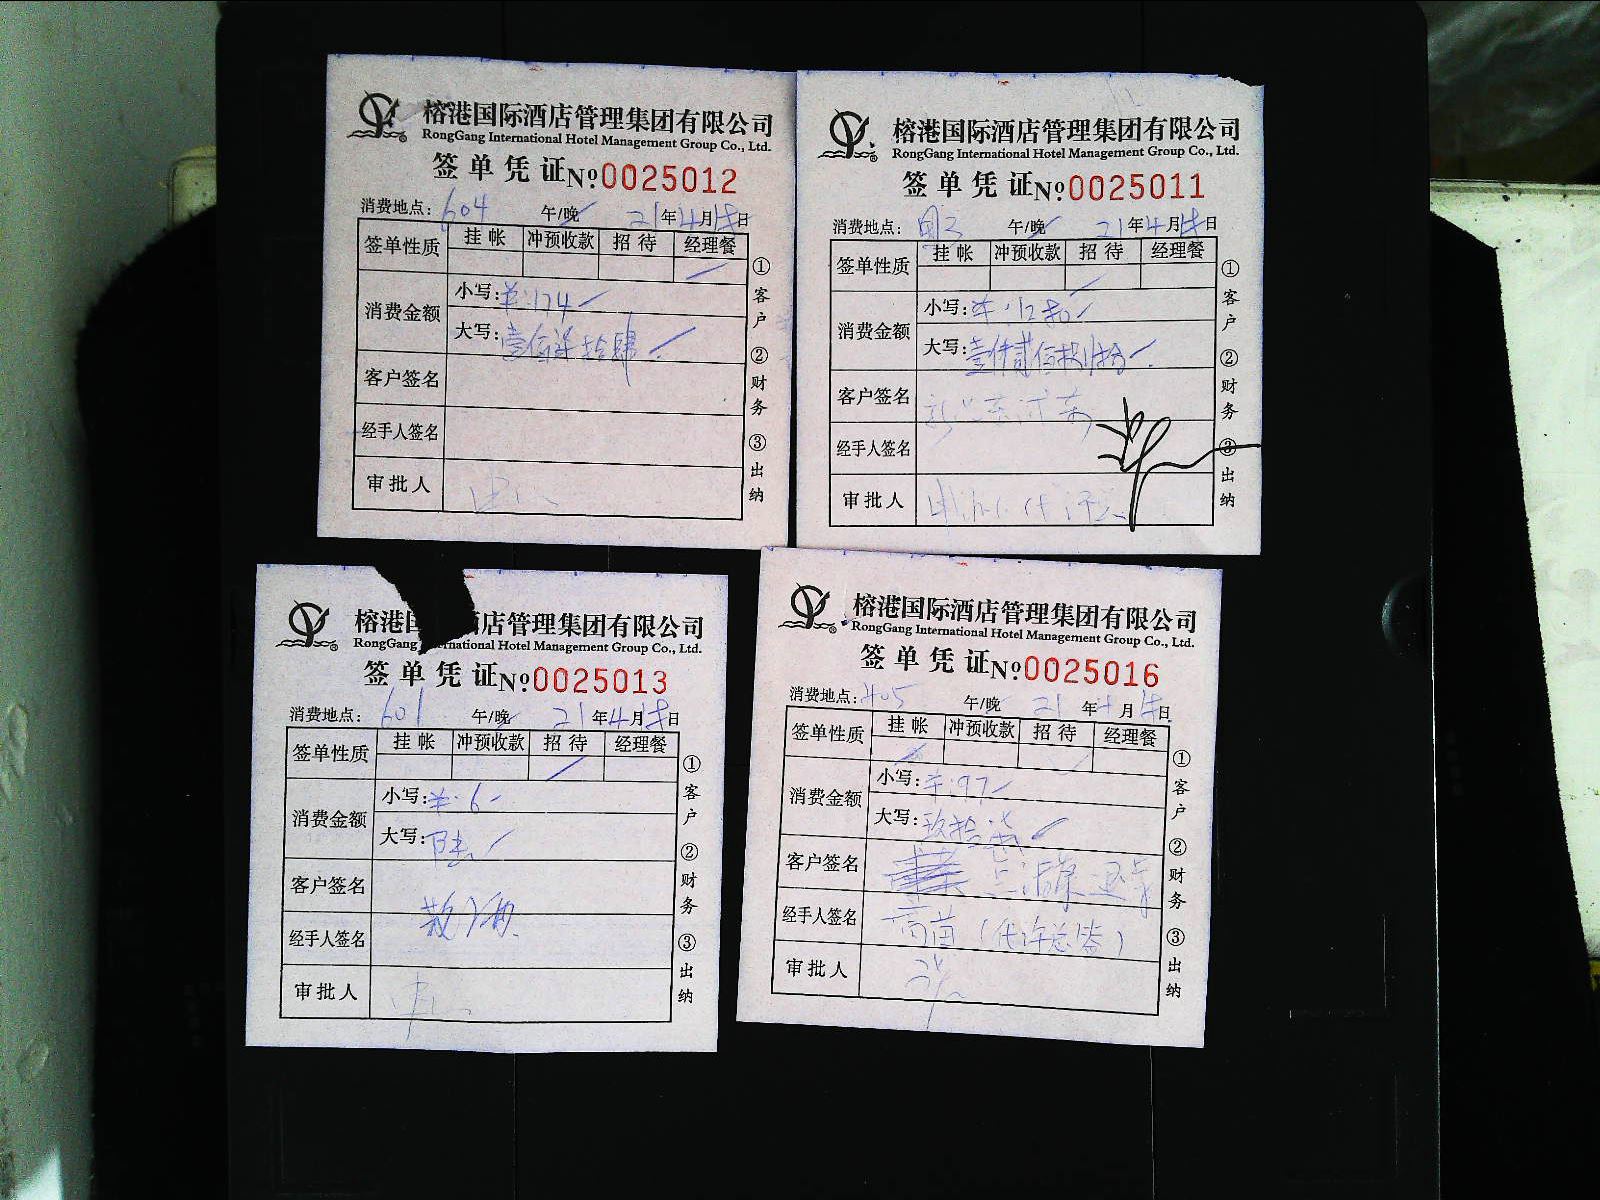 榕港国际酒店管理集团有限公司
RongGang International Hotel Management Group Co., Ltd.
签单凭证 №0025012
消费地点: 604 午/晚 21年4月 日
签单性质 挂帐 冲预收款 招待 经理餐
消费金额 小写: ¥:174
大写: 壹佰柒拾肆
客户签名
经手人签名
审批人
①客户 ②财务 ③出纳
榕港国际酒店管理集团有限公司
RongGang International Hotel Management Group Co., Ltd.
签单凭证 №0025011
消费地点: 午/晚 21年4月 日
签单性质 挂帐 冲预收款 招待 经理餐
消费金额 小写:
大写: 壹仟贰佰捌拾
客户签名
经手人签名
审批人
①客户 ②财务 ③出纳
榕港 酒店管理集团有限公司
RongGang International Hotel Management Group Co., Ltd.
签单凭证 №0025013
消费地点: 601 午/晚 21年4月 日
签单性质 挂帐 冲预收款 招待 经理餐
消费金额 小写: ¥:6
大写: 陆
客户签名
经手人签名
审批人
①客户 ②财务 ③出纳
榕港国际酒店管理集团有限公司
RongGang International Hotel Management Group Co., Ltd.
签单凭证 №0025016
消费地点: 405 午/晚 21年4月 日
签单性质 挂帐 冲预收款 招待 经理餐
消费金额 小写: ¥:97
大写: 玖拾柒
客户签名
经手人签名 高苗(代许总监)
审批人
①客户 ②财务 ③出纳